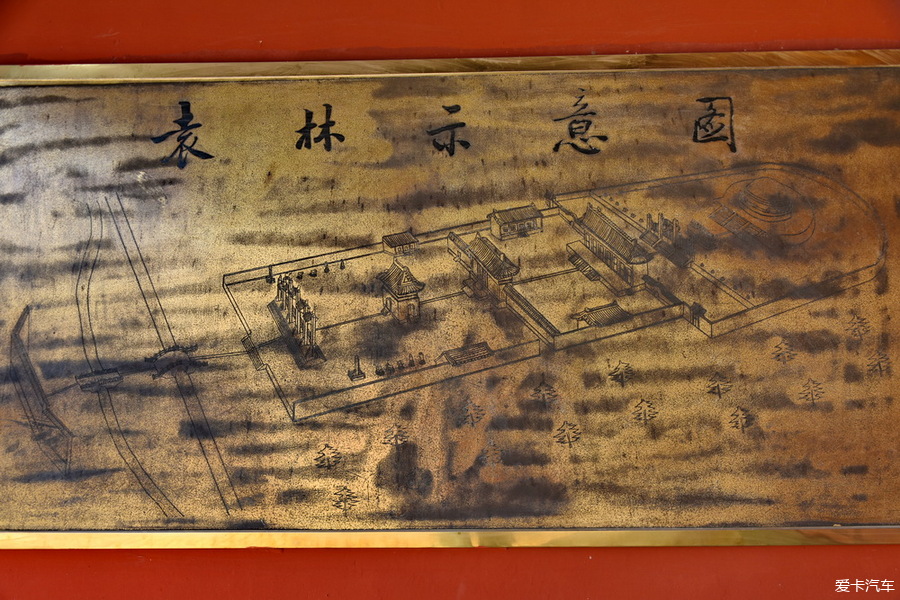 袁林示意图
爱卡汽车